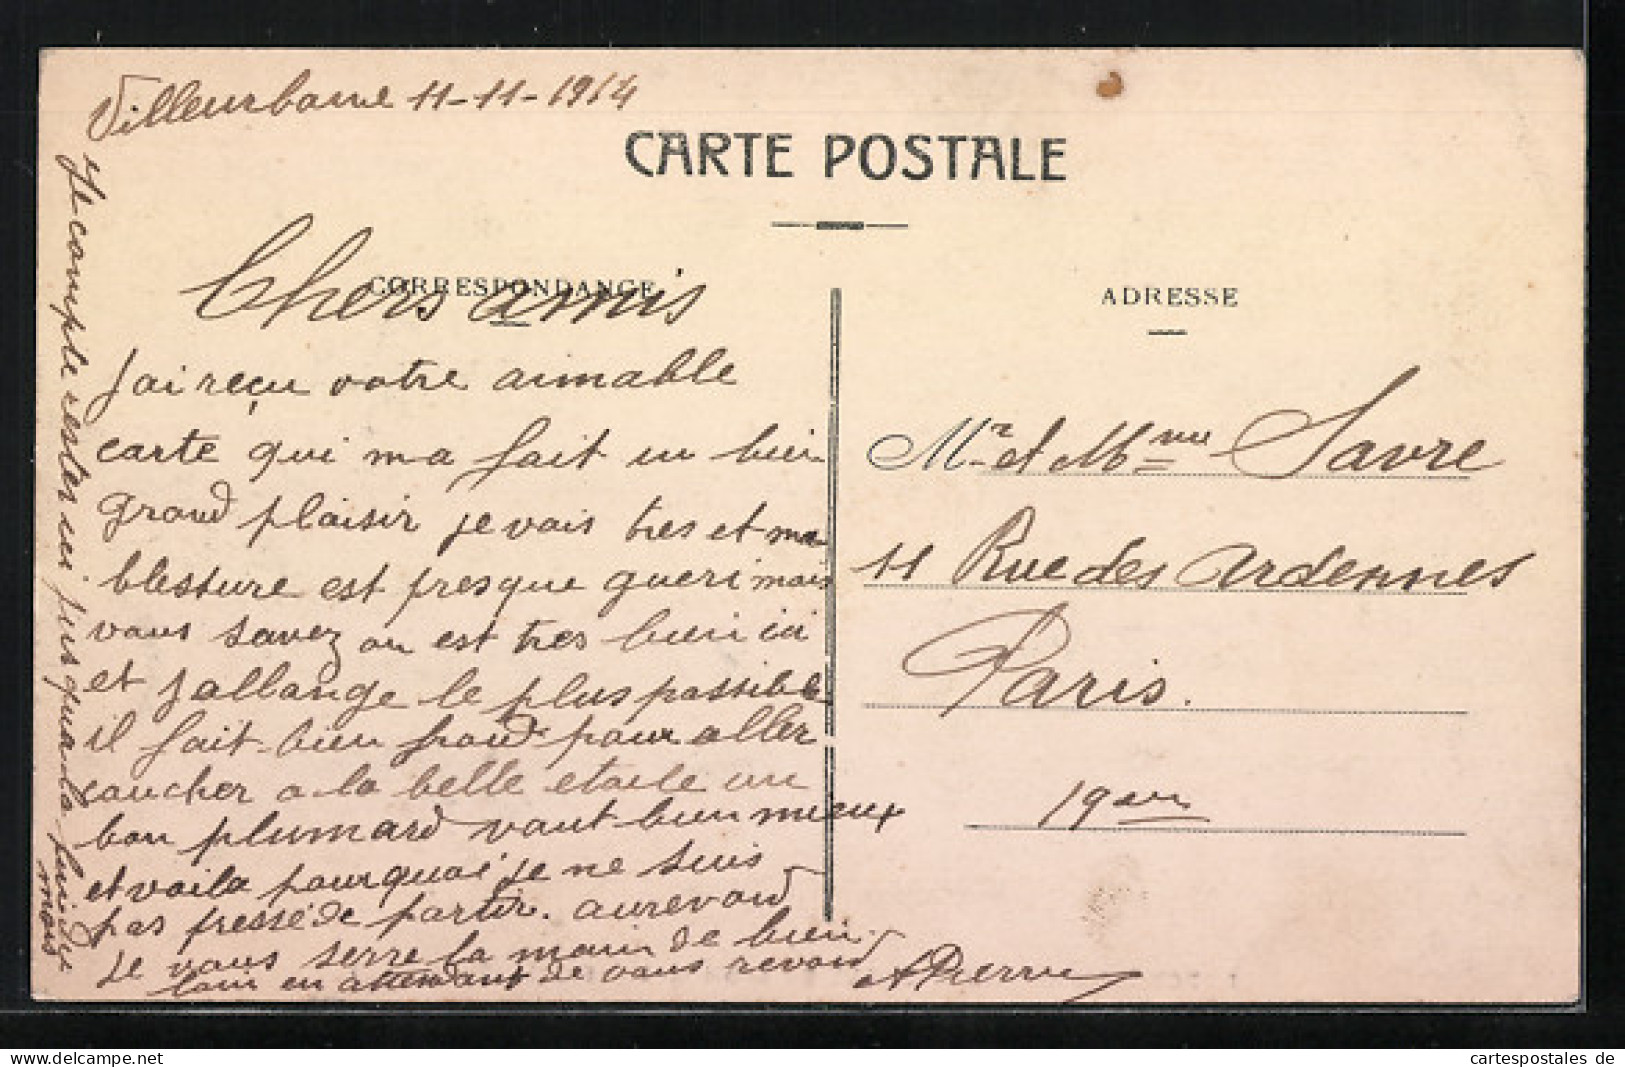 Villeurbanne 11-11-1914
CARTE POSTALE
CORRESPONDANCE
ADRESSE
Chers amis
J'ai reçu votre aimable
carte qui ma fait un bien
grand plaisir je vais tres et ma
blessure est presque gueri mais
vous savez on est tres bien ici
et j'allonge le plus possible
il fait bien froid pour aller
coucher a la belle etoile un
bon plumard vaut bien mieux
et voila pourquoi je ne suis
pas presse de partir. aurevoir
Je vous serre la main de bien
loin en attendant de vous revoir
Pierre
Je compte rester ici jusqua la fin de
mois
Mr et Mme Savre
11 Rue des Ardennes
Paris.
19em
cartespostales de